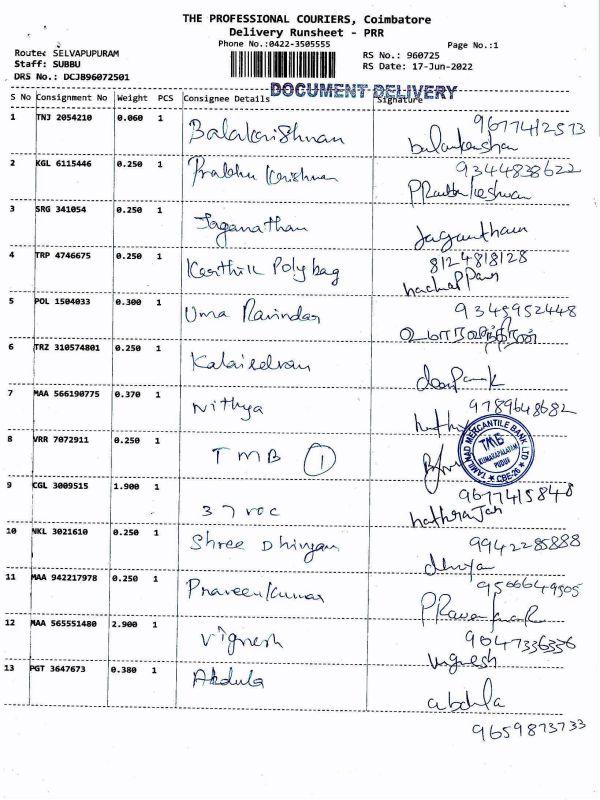 THE PROFESSIONAL COURIERS, Coimbatore
Delivery Runsheet - PRR
Phone No.:0422-3505555
Page No.:1
Route: SELVAPUPURAM
RS No.: 960725
Staff: SUBBU
RS Date: 17-Jun-2022
DRS No.: DCJB96072501
DOCUMENT DELIVERY
S No Consignment No Weight PCS Consignee Details Signature
9677412573
1 TNJ 2054210 0.060 1 Balakrishnan
9344838622
2 KGL 6115446 0.250 1 Prabhu Krishnan
3 SRG 341054 0.250 1 Jaganathan
Jaganthan
4 TRP 4746675 0.250 1 Karthik Polybag 8124818128
5 POL 1504033 0.300 1 Uma Ravindar 9345952448
6 TRZ 310574801 0.250 1 Kalaiselvan
Deepak
7 MAA 566190775 0.370 1 Nithya 9789648682
8 VRR 7072911 0.250 1 TMB 1
TAMILNAD MERCANTILE BANK LTD
TMB
KUMARAPALAYAM
PUDUR
CBE-26
9 CGL 3009515 1.900 1
9677415848
37 roc
10 NKL 3021610 0.250 1 Shree Dhinyam 9942285888
11 MAA 942217978 0.250 1 Praveenkumar 9566649505
12 MAA 565551480 2.900 1 Vignesh 9047336336
Vignesh
13 PGT 3647673 0.380 1 Abdula
abdula
9659873733